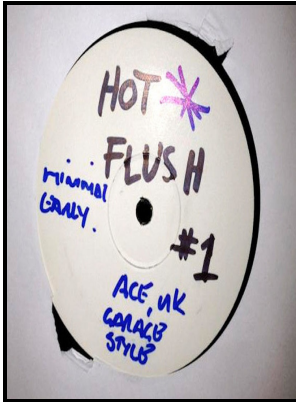 HOT
FLUSH
#1
minimal
EARLY.
ACE, UK
GARAGE
STYLE